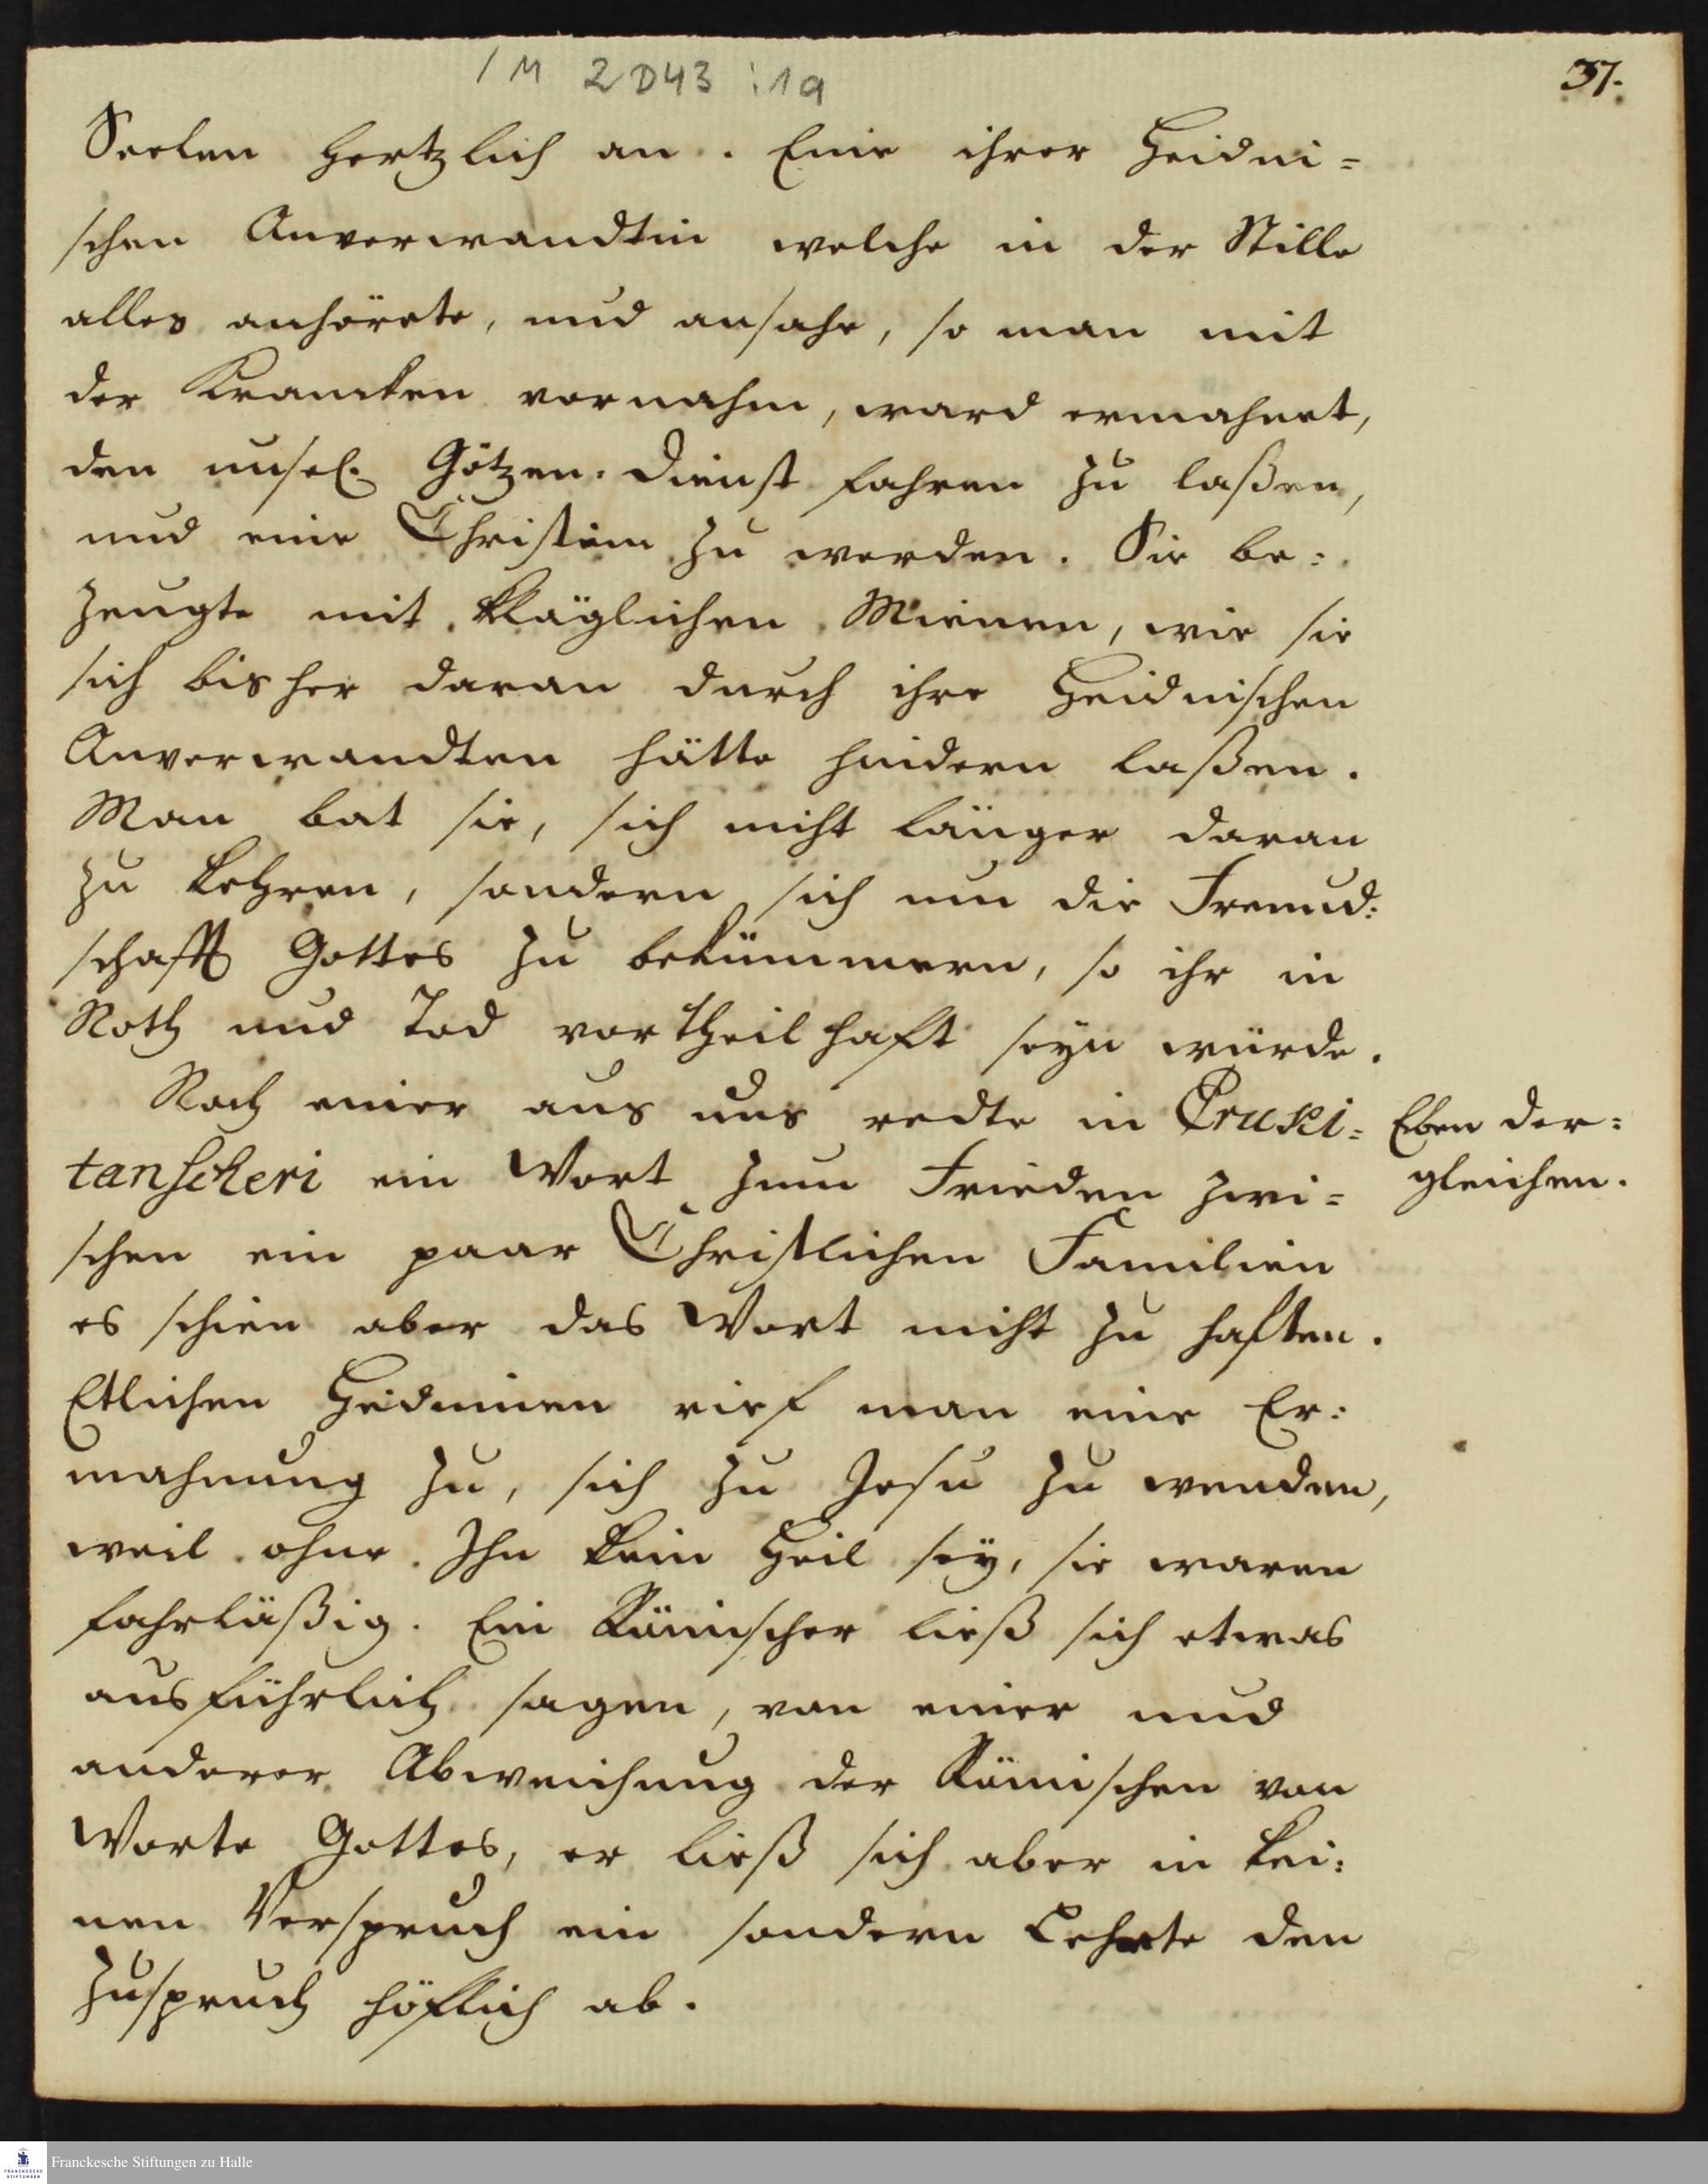 1 M 2 D43 : 19
37.
Seelen hertzlich an. Eine ihrer Heidni=
schen Anverwandtin welche in der Stille
alles anhörete, und ansahe, so man mit
der Krancken vornahm, ward ermahnet,
den unsel. Götzen-Dienst fahren zu laßen,
und eine Christin zu werden. Sie be=
zeugte mit kläglichen Mienen, wie sie
sich bisher daran durch ihre Heidnischen
Anverwandten hätte hindern laßen.
Man bat sie, sich nicht länger daran
zu kehren, sondern sich um die Freund=
schafft Gottes zu bekümmern, so ihr in
Noth und Tod vortheilhaft seyn würde.
Noch einer aus uns redte in Cruki=
tanscheri ein Wort zum Frieden zwi=
schen ein paar Christlichen Familien
es schien aber das Wort nicht zu haften.
Etlichen Heidninen rief man eine Er=
mahnung zu, sich zu Jesu zu wenden,
weil ohne Ihn kein Heil sey, sie waren
fahrläßig. Ein Römischer ließ sich etwas
ausführlich sagen, von einer und
anderer Abweichung der Römischen von
Worte Gottes, er ließ sich aber in kei=
nen Verspruch ein sondern lehnte den
Zuspruch höflich ab.
Eben der=
gleichen.
Franckesche Stiftungen zu Halle
FRANCKESCHE
STIFTUNGEN